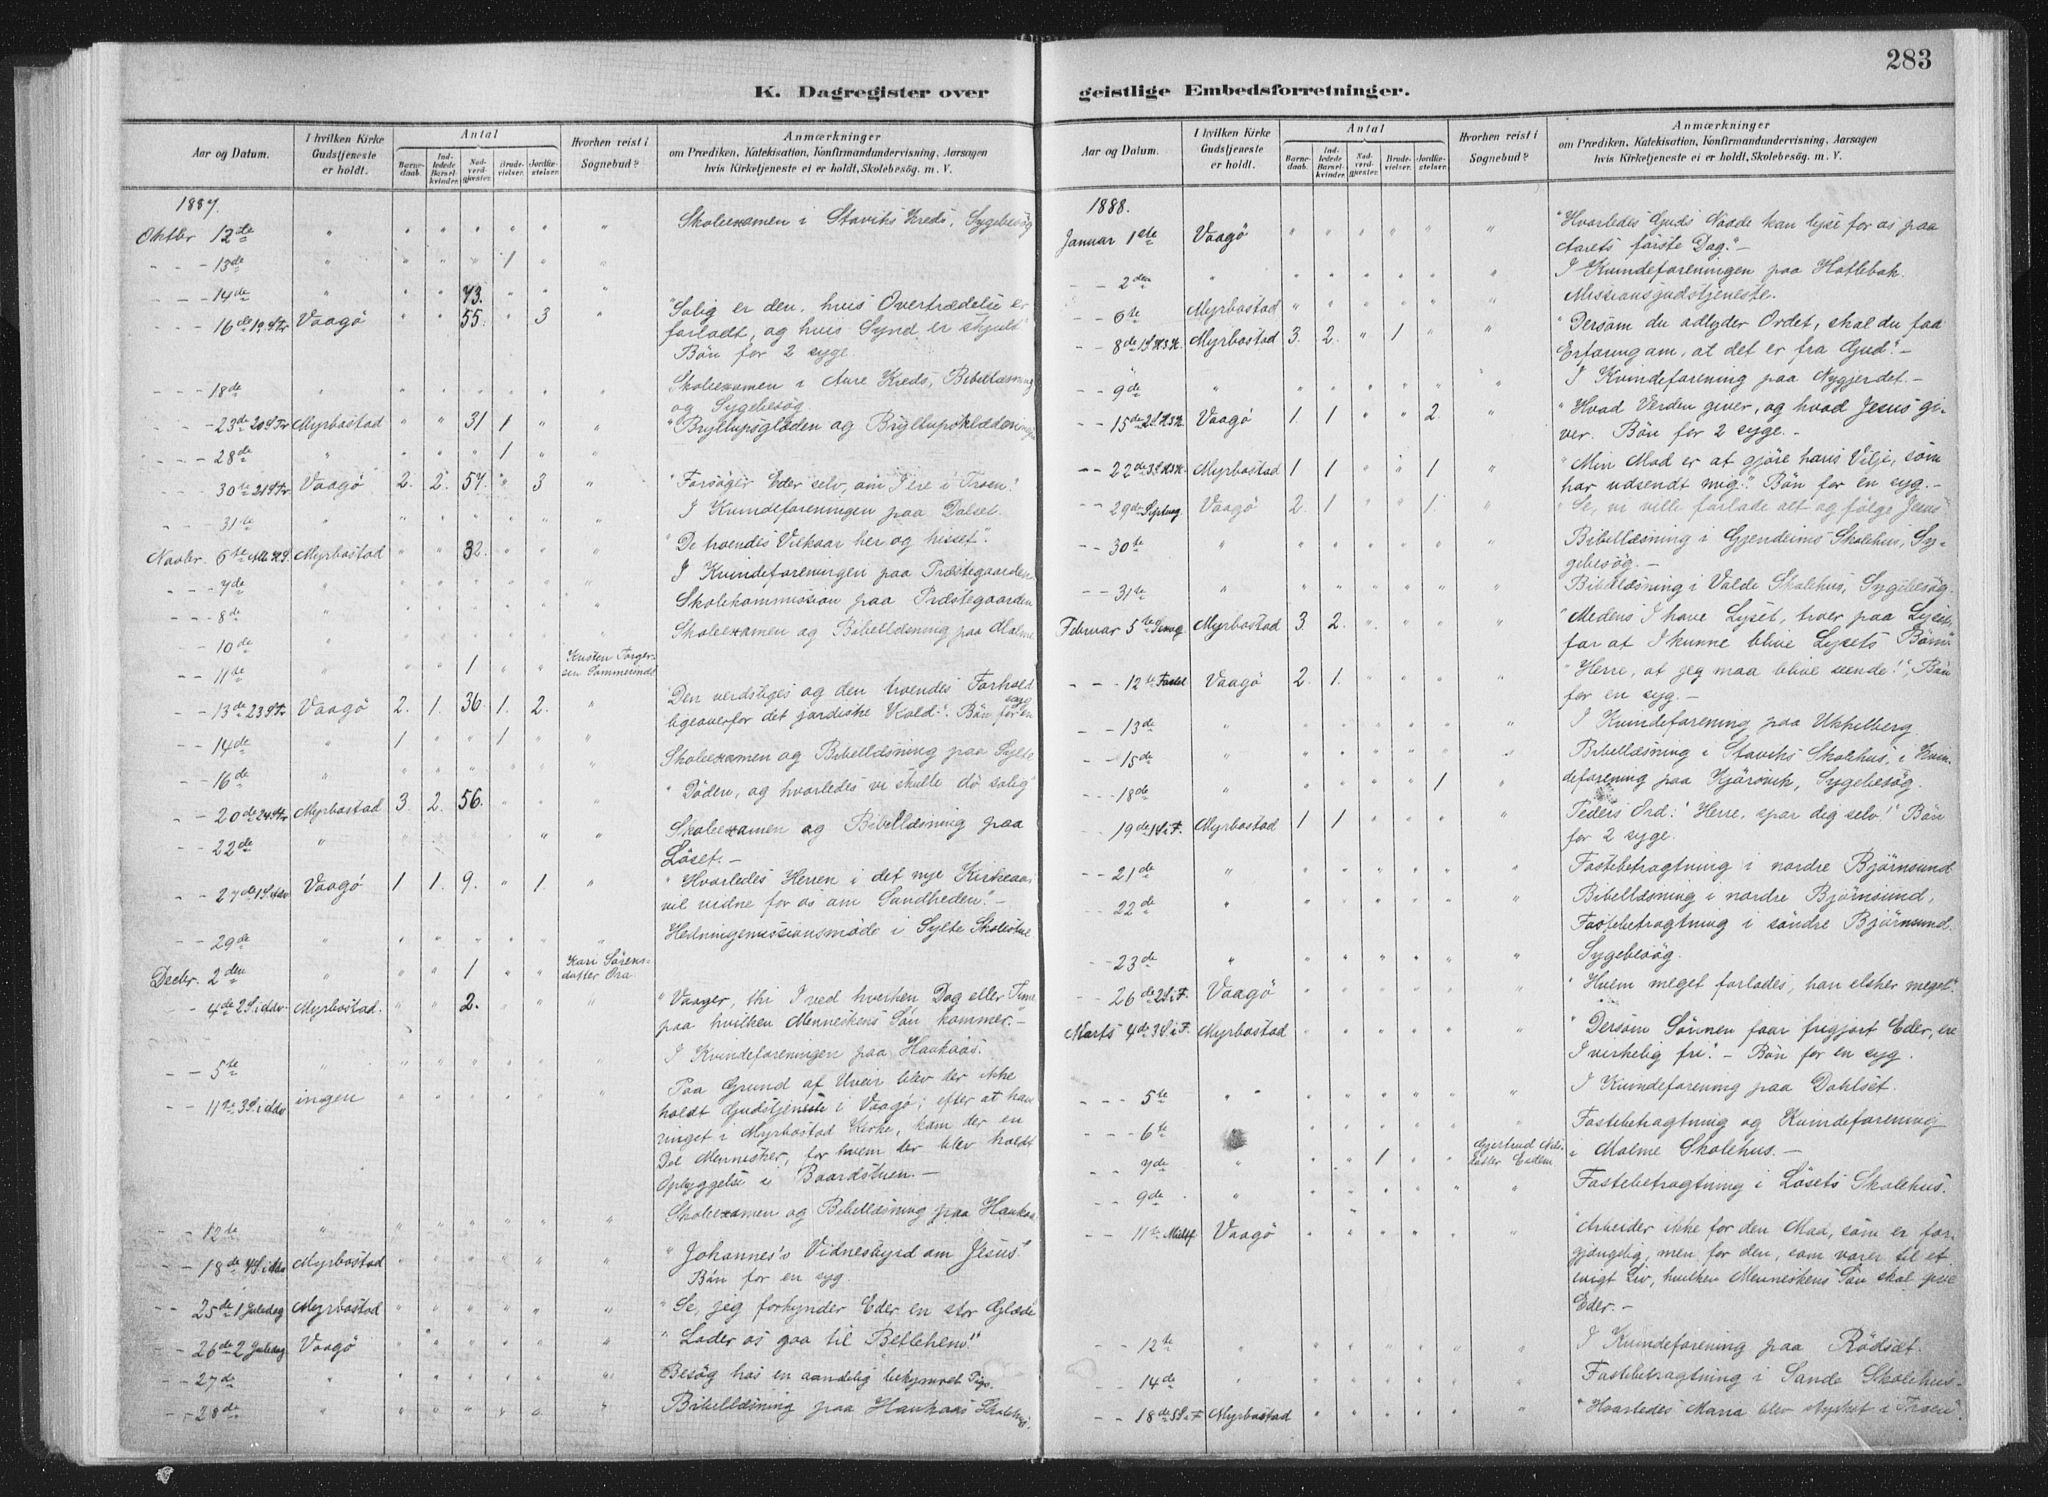 283
K. Dagregister over geistlige Embedsforretninger.
Aar og Datum. I hvilken Kirke Gudstjeneste er holdt. Antal Barnedaab. Indledede Barselkvinder. Nadverdgjæster. Brudevielser. Jordfæstelser. Hvorhen reist i Sognebud? Anmærkninger om Prædiken, Katekisation, Konfirmandundervisning, Aarsagen hvis Kirketjeneste ei er holdt, Skolebesøg. m. V.
1887.
Oktbr 12te " " " " " " " Skoleexamen i Staviks Kreds, Sygebesög
- - - 13de " " " " 1 " "
- - - 14de " " " 43. " " "
- - - 16de 19 S Tr Vaagö " " 55. " 3 " "Salig er den, hvis Overtrædelse er
forladt, og hvis Synd er skjult"
Bön for 2 syge.
- - - 18de " " " " " " " Skoleexamen i Aure Kreds, Bibellæsning
og Sygebesög
- - - 23de 20 S Tr Myrbostad " " 31 1 " " "Bryllupsglæden og Bryllupsklædningen
- - - 28de " " " " 1 " "
- - - 30te 21 S Tr Vaagö 2. 2. 54. " 3 " "Forsöger Eder selv, om I ere i Troen."
- - - 31te " " " " " " " I Kvindeforeningen paa Dalset.
Novbr. 6te Alle H S. Myrbostad " " 32. " " " "De troendes Vilkaar her og hisset".
- - - 7de " " " " " " " I Kvindeforeningen paa Præstegaarden
- - - 8de " " " " " " " Skolekommission paa Præstegaarden
- - - 10de " " " " " " " Skoleexamen og Bibellæsning paa Malme
- - 11te " " " 1 " " Kristen Torger-
sen Sommernæs
- - 13de 23 S Tr Vaagö 2. 1. 36. 1. 2. " "Den verdsliges og den troendes Forhold
ligeoverfor det jordiske Kald". Bön for en syg
- - 14de " 1 " " 1 " "
- - 16de " " " " " " " Skoleexamen og Bibellæsning paa Sylte
- - 20de 24 S Tr Myrbostad 3. 2. 56. " " " "Döden, og hvorledes vi skulle dö salig"
- - 22de " " " " " " " Skoleexamen og Bibellæsning paa
Löset. -
- - 27de 1 S Adv Vaagö 1 1. 9. " 1. " "Hvorledes Herren i det nye Kirkeaar
vil vidne for os om Sandheden." -
- - 29de " " " " " " " Hedningemissionsmöde i Sylte Skolestue
Decbr. 2den " " " 1 " " Kari Sörens-
datter Ora.
- - 4de 2 S i Adv Myrbostad. " " 2. " " " "Vaager, thi I ved hverken Dag eller Time
paa hvilken Menneskens Sön kommer. -
- - 5te " " " " " " " I Kvindeforeningen paa Haukaas.
- - 11te 3 S i Adv ingen " " " " " " Paa Grund af Uveir blev der ikke
holdt Gudstjeneste i Vaagö; efter at have
ringet i Myrbostad Kirke, kom der en
Del Mennesker, for hvem der blev holdt
Opbyggelse i Baardstuen. -
- - 12te " " " " " " " Skoleexamen og Bibellæsning paa Haukaas
- - 18de 4 S i Adv Myrbostad " " " " " " "Johannes's Vidnesbyrd om Jesus."
Bön for en syg.
- - 25de 1 Juledag Myrbostad " " " " " " "Se, jeg forkynder Eder en stor Glæde
- - 26de 2 Juledag Vaagö " " " " " " "Lader os gaa til Betlehem"
- - 27de " " " " " " " Besög hos en aandelig bekymret Pige.
- - 28de " " " " " " " Bibellæsning paa Haukaas Skolehus.
Aar og Datum. I hvilken Kirke Gudstjeneste er holdt. Antal Barnedaab. Indledede Barselkvinder. Nadverdgjæster. Brudevielser. Jordfæstelser. Hvorhen reist i Sognebud? Anmærkninger om Prædiken, Katekisation, Konfirmandundervisning, Aarsagen hvis Kirketjeneste ei er holdt, Skolebesøg. m. V.
1888.
Januar 1ste Vaagö " " " " " " "Hvorledes Guds Naade kan lyse for os paa
Aarets förste Dag." -
- - 2den " " " " " " " I Kvindeforeningen paa Hatlebak.
- - 6te Myrbostad " " " " " " Missionsgudstjeneste.
- - 8de 1 S H 3 K. Myrbostad 3. 2. " 1 " " "Dersom du adlyder Ordet, skal du faa
Erfaring om, at det er fra Gud". -
- - 9de " " " " " " " I Kvindeforening paa Nygjerdet. -
- - 15de 2 S H 3 K. Vaagö 1 1 " " 2. " "Hvad Verden giver, og hvad Jesus gi-
ver. Bön for 2 syge. -
- - 22de 3 S H 3 K. Myrbostad 1 1 " " 1 " "Min Mad er at gjöre hans Vilje, som
har udsendt mig." Bön for en syg. -
- - 29de Septuag Vaagö 2. 1 " " 1. " "Se, vi ville forlade alt og fölge Jesus"
- - 30te " " " " " " " Bibellæsning i Gjendems Skolehus, Sy-
gebesög. -
- - 31te " " " " " " " Bibellæsning i Valde Skolehus, Sygebesög.
Februar 5te Sexag Myrbostad 3. 2. " " " " "Medens I have Lyset, troer paa Lyset,
for at I kunne blive Lysets Börn"
- - - 12te Fastel Vaagö 2. 1. " " " " "Herre, at jeg maa blive seende!", Bön
for en syg. -
- - 13de " " " " " " " I Kvindeforening paa Ukkelberg
- - 15de " " " " " " " Bibellæsning i Staviks Skolehus, i Kvin-
deforening paa Kjörsvik, Sygebesög.
- - 18de " " " " 1 "
- - 19de 1 S i F. Myrbostad 1 1 " " " " Peders Ord: "Herre, spar dig selv!" Bön
for 2 syge.
- - 21de " " " " " " " Fastebetragtning i nordre Björnsund
- - 22de " " " " " " " Bibellæsning i nordre Björnsund,
Fastebetragtning i söndre Björnsund.
- - 23de " " " " " " " Sygebesög.
- - 26de 2 S i F. Vaagö " " " " " " "Hvem meget forlades, han elsker meget".
Marts 4de 3 S i F. Myrbostad " " " " " " "Dersom Sönnen faar frigjort Eder, ere
I virkelig fri". - Bön for en syg.
- - - 5te " " " " " " " I Kvindeforening paa Dahlset.
- - - 6te " " " " " " Fastebetragtning og Kvindeforening
i Malme Skolehus. -
- - 7de " " " 1 " " Gjertrud
datter
- - 9de " " " " " " " Fastebetragtning i Lösets Skolehus.
- - 11te Midf Vaagö " " " " " " "Arbeider ikke for den Mad, som er for-
gjængelig, men for den, som varer til et
evigt Liv, hvilken Menneskens Sön skal give
Eder. -
- - 12te " " " " " " " I Kvindeforening paa Rödset.
- - 14de " " " " " " " Fastebetragtning i Sande Skolehus.
- - 18de 5 S i F Myrbostad " " " " " " "Hvorledes Maria blev styrket i Troen".